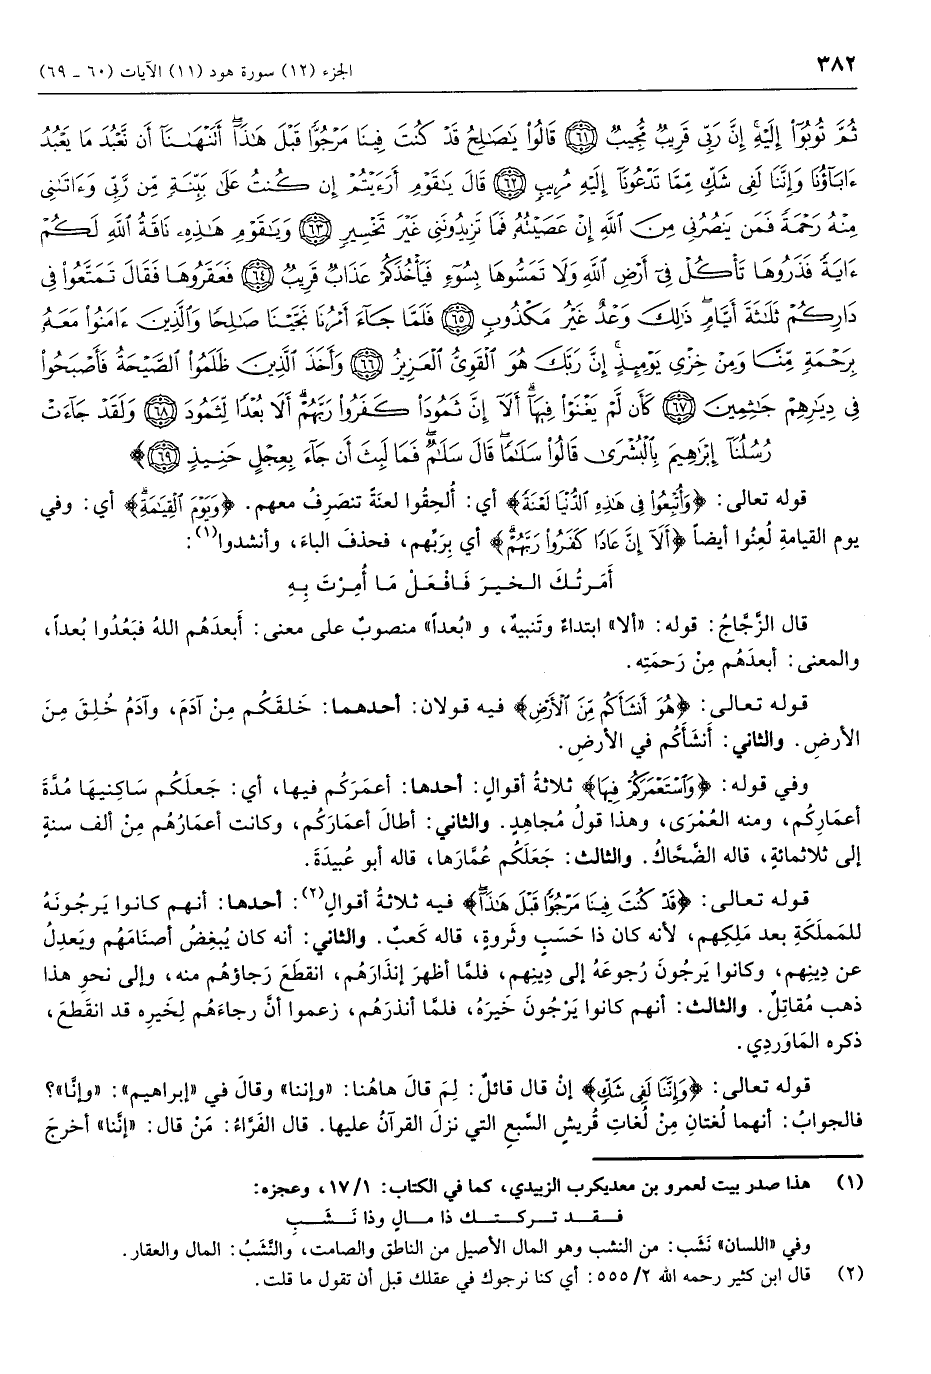 ٣٨٢
الجزء (١٢) سورة هود (١١) الآيات (٦٠ ـ ٦٩)
ثُمَّ تُوبُوٓا۟ إِلَيْهِ ۚ إِنَّ رَبِّى قَرِيبٌ مُّجِيبٌ ﴿٦١﴾ قَالُوا۟ يَـٰصَـٰلِحُ قَدْ كُنتَ فِينَا مَرْجُوًّا قَبْلَ هَـٰذَآ ۖ أَتَنْهَىٰنَآ أَن نَّعْبُدَ مَا يَعْبُدُ
ءَابَآؤُنَا وَإِنَّنَا لَفِى شَكٍّ مِّمَّا تَدْعُونَآ إِلَيْهِ مُرِيبٍ ﴿٦٢﴾ قَالَ يَـٰقَوْمِ أَرَءَيْتُمْ إِن كُنتُ عَلَىٰ بَيِّنَةٍ مِّن رَّبِّى وَءَاتَىٰنِى
مِنْهُ رَحْمَةً فَمَن يَنصُرُنِى مِنَ ٱللَّهِ إِنْ عَصَيْتُهُۥ فَمَا تَزِيدُونَنِى غَيْرَ تَخْسِيرٍ ﴿٦٣﴾ وَيَـٰقَوْمِ هَـٰذِهِۦ نَاقَةُ ٱللَّهِ لَكُمْ
ءَايَةً فَذَرُوهَا تَأْكُلْ فِىٓ أَرْضِ ٱللَّهِ وَلَا تَمَسُّوهَا بِسُوٓءٍ فَيَأْخُذَكُمْ عَذَابٌ قَرِيبٌ ﴿٦٤﴾ فَعَقَرُوهَا فَقَالَ تَمَتَّعُوا۟ فِى
دَارِكُمْ ثَلَـٰثَةَ أَيَّامٍ ۖ ذَٰلِكَ وَعْدٌ غَيْرُ مَكْذُوبٍ ﴿٦٥﴾ فَلَمَّا جَآءَ أَمْرُنَا نَجَّيْنَا صَـٰلِحًا وَٱلَّذِينَ ءَامَنُوا۟ مَعَهُۥ
بِرَحْمَةٍ مِّنَّا وَمِنْ خِزْىِ يَوْمِئِذٍ ۗ إِنَّ رَبَّكَ هُوَ ٱلْقَوِىُّ ٱلْعَزِيزُ ﴿٦٦﴾ وَأَخَذَ ٱلَّذِينَ ظَلَمُوا۟ ٱلصَّيْحَةُ فَأَصْبَحُوا۟
فِى دِيَـٰرِهِمْ جَـٰثِمِينَ ﴿٦٧﴾ كَأَن لَّمْ يَغْنَوْا۟ فِيهَآ ۗ أَلَآ إِنَّ ثَمُودَا۟ كَفَرُوا۟ رَبَّهُمْ ۗ أَلَا بُعْدًا لِّثَمُودَ ﴿٦٨﴾ وَلَقَدْ جَآءَتْ
رُسُلُنَآ إِبْرَٰهِيمَ بِٱلْبُشْرَىٰ قَالُوا۟ سَلَـٰمًا ۖ قَالَ سَلَـٰمٌ ۖ فَمَا لَبِثَ أَن جَآءَ بِعِجْلٍ حَنِيذٍ ﴿٦٩﴾﴾
قوله تعالى: ﴿وَأُتْبِعُوا۟ فِى هَـٰذِهِ ٱلدُّنْيَا لَعْنَةً﴾ أي: أُلحِقُوا لعنةً تنصَرِفُ معهم. ﴿وَيَوْمَ ٱلْقِيَـٰمَةِ ۗ﴾ أي: وفي
يوم القيامةِ لُعِنُوا أيضاً ﴿أَلَآ إِنَّ عَادًا كَفَرُوا۟ رَبَّهُمْ ۗ﴾ أي بِرَبِّهم، فحذفَ الباءَ، وأنشدوا(١):
أَمَرتُكَ الخيرَ فَافْعَلْ مَا أُمِرْتَ بِهِ
قال الزَّجَّاجُ: قوله: «ألا» ابتداءٌ وتَنبيهٌ، و «بُعداً» منصوبٌ على معنى: أَبعدَهُم اللهُ فبَعُدُوا بُعداً،
والمعنى: أبعدَهُم مِنْ رَحمَتِه.
قوله تعالى: ﴿هُوَ أَنشَأَكُم مِّنَ ٱلْأَرْضِ﴾ فيه قولان: أحدهما: خَلقَكُم مِنْ آدَمَ، وآدَمُ خُلِقَ مِنَ
الأرضِ. والثاني: أَنشَأَكُم في الأرضِ.
وفي قوله: ﴿وَٱسْتَعْمَرَكُمْ فِيهَا﴾ ثلاثةُ أقوالٍ: أحدها: أعمَرَكُم فيها، أي: جَعلَكُم سَاكِنِيهَا مُدَّةَ
أعمَارِكُم، ومنه العُمْرَى، وهذا قولُ مُجاهِدٍ. والثاني: أطالَ أعمَارَكُم، وكانت أعمَارُهُم مِنْ ألف سنةٍ
إلى ثلاثمائةٍ، قاله الضَّحَّاكُ. والثالث: جَعَلَكُم عُمَّارَها، قاله أبو عُبيدَةَ.
قوله تعالى: ﴿قَدْ كُنتَ فِينَا مَرْجُوًّا قَبْلَ هَـٰذَآ ۖ﴾ فيه ثلاثةُ أقوالٍ(٢): أحدها: أنهم كانوا يَرجُونَهُ
للمَملَكَةِ بعد مَلِكِهم، لأنه كان ذا حَسَبٍ وثَروةٍ، قاله كَعبٌ. والثاني: أنه كان يُبغِضُ أصنَامَهُم ويَعدِلُ
عن دِينِهم، وكانوا يَرجُونَ رُجوعَهُ إلى دِينِهم، فلمَّا أظهرَ إنذَارَهُم، انقطَعَ رَجاؤهُم منه، وإلى نحوِ هذا
ذهب مُقاتِلٌ. والثالث: أنهم كانوا يَرْجُونَ خَيرَهُ، فلمَّا أنذرَهُم، زعموا أنَّ رجاءَهُم لِخَيرِه قد انقطَعَ،
ذكره المَاوَردِي.
قوله تعالى: ﴿وَإِنَّنَا لَفِى شَكٍّ﴾ إنْ قال قائلٌ: لِمَ قالَ هاهُنا: «وإننا» وقالَ في «إبراهيم»: «وإنَّا»؟
فالجوابُ: أنهما لُغتانِ مِنْ لُغاتِ قُريشٍ السَّبعِ التي نزلَ القرآنُ عليها. قال الفَرَّاءُ: مَنْ قال: «إنَّنا» أخرجَ
(١) هذا صدر بيت لعمرو بن معديكرب الزبيدي، كما في الكتاب: ١/ ١٧، وعجزه:
فـقـد تـركـتـك ذا مـال وذا نَـشَـبِ
وفي «اللسان» نَشَب: من النشب وهو المال الأصيل من الناطق والصامت، والنَّشَبُ: المال والعقار.
(٢) قال ابن كثير رحمه الله ٢/ ٥٥٥: أي كنا نرجوك في عقلك قبل أن تقول ما قلت.